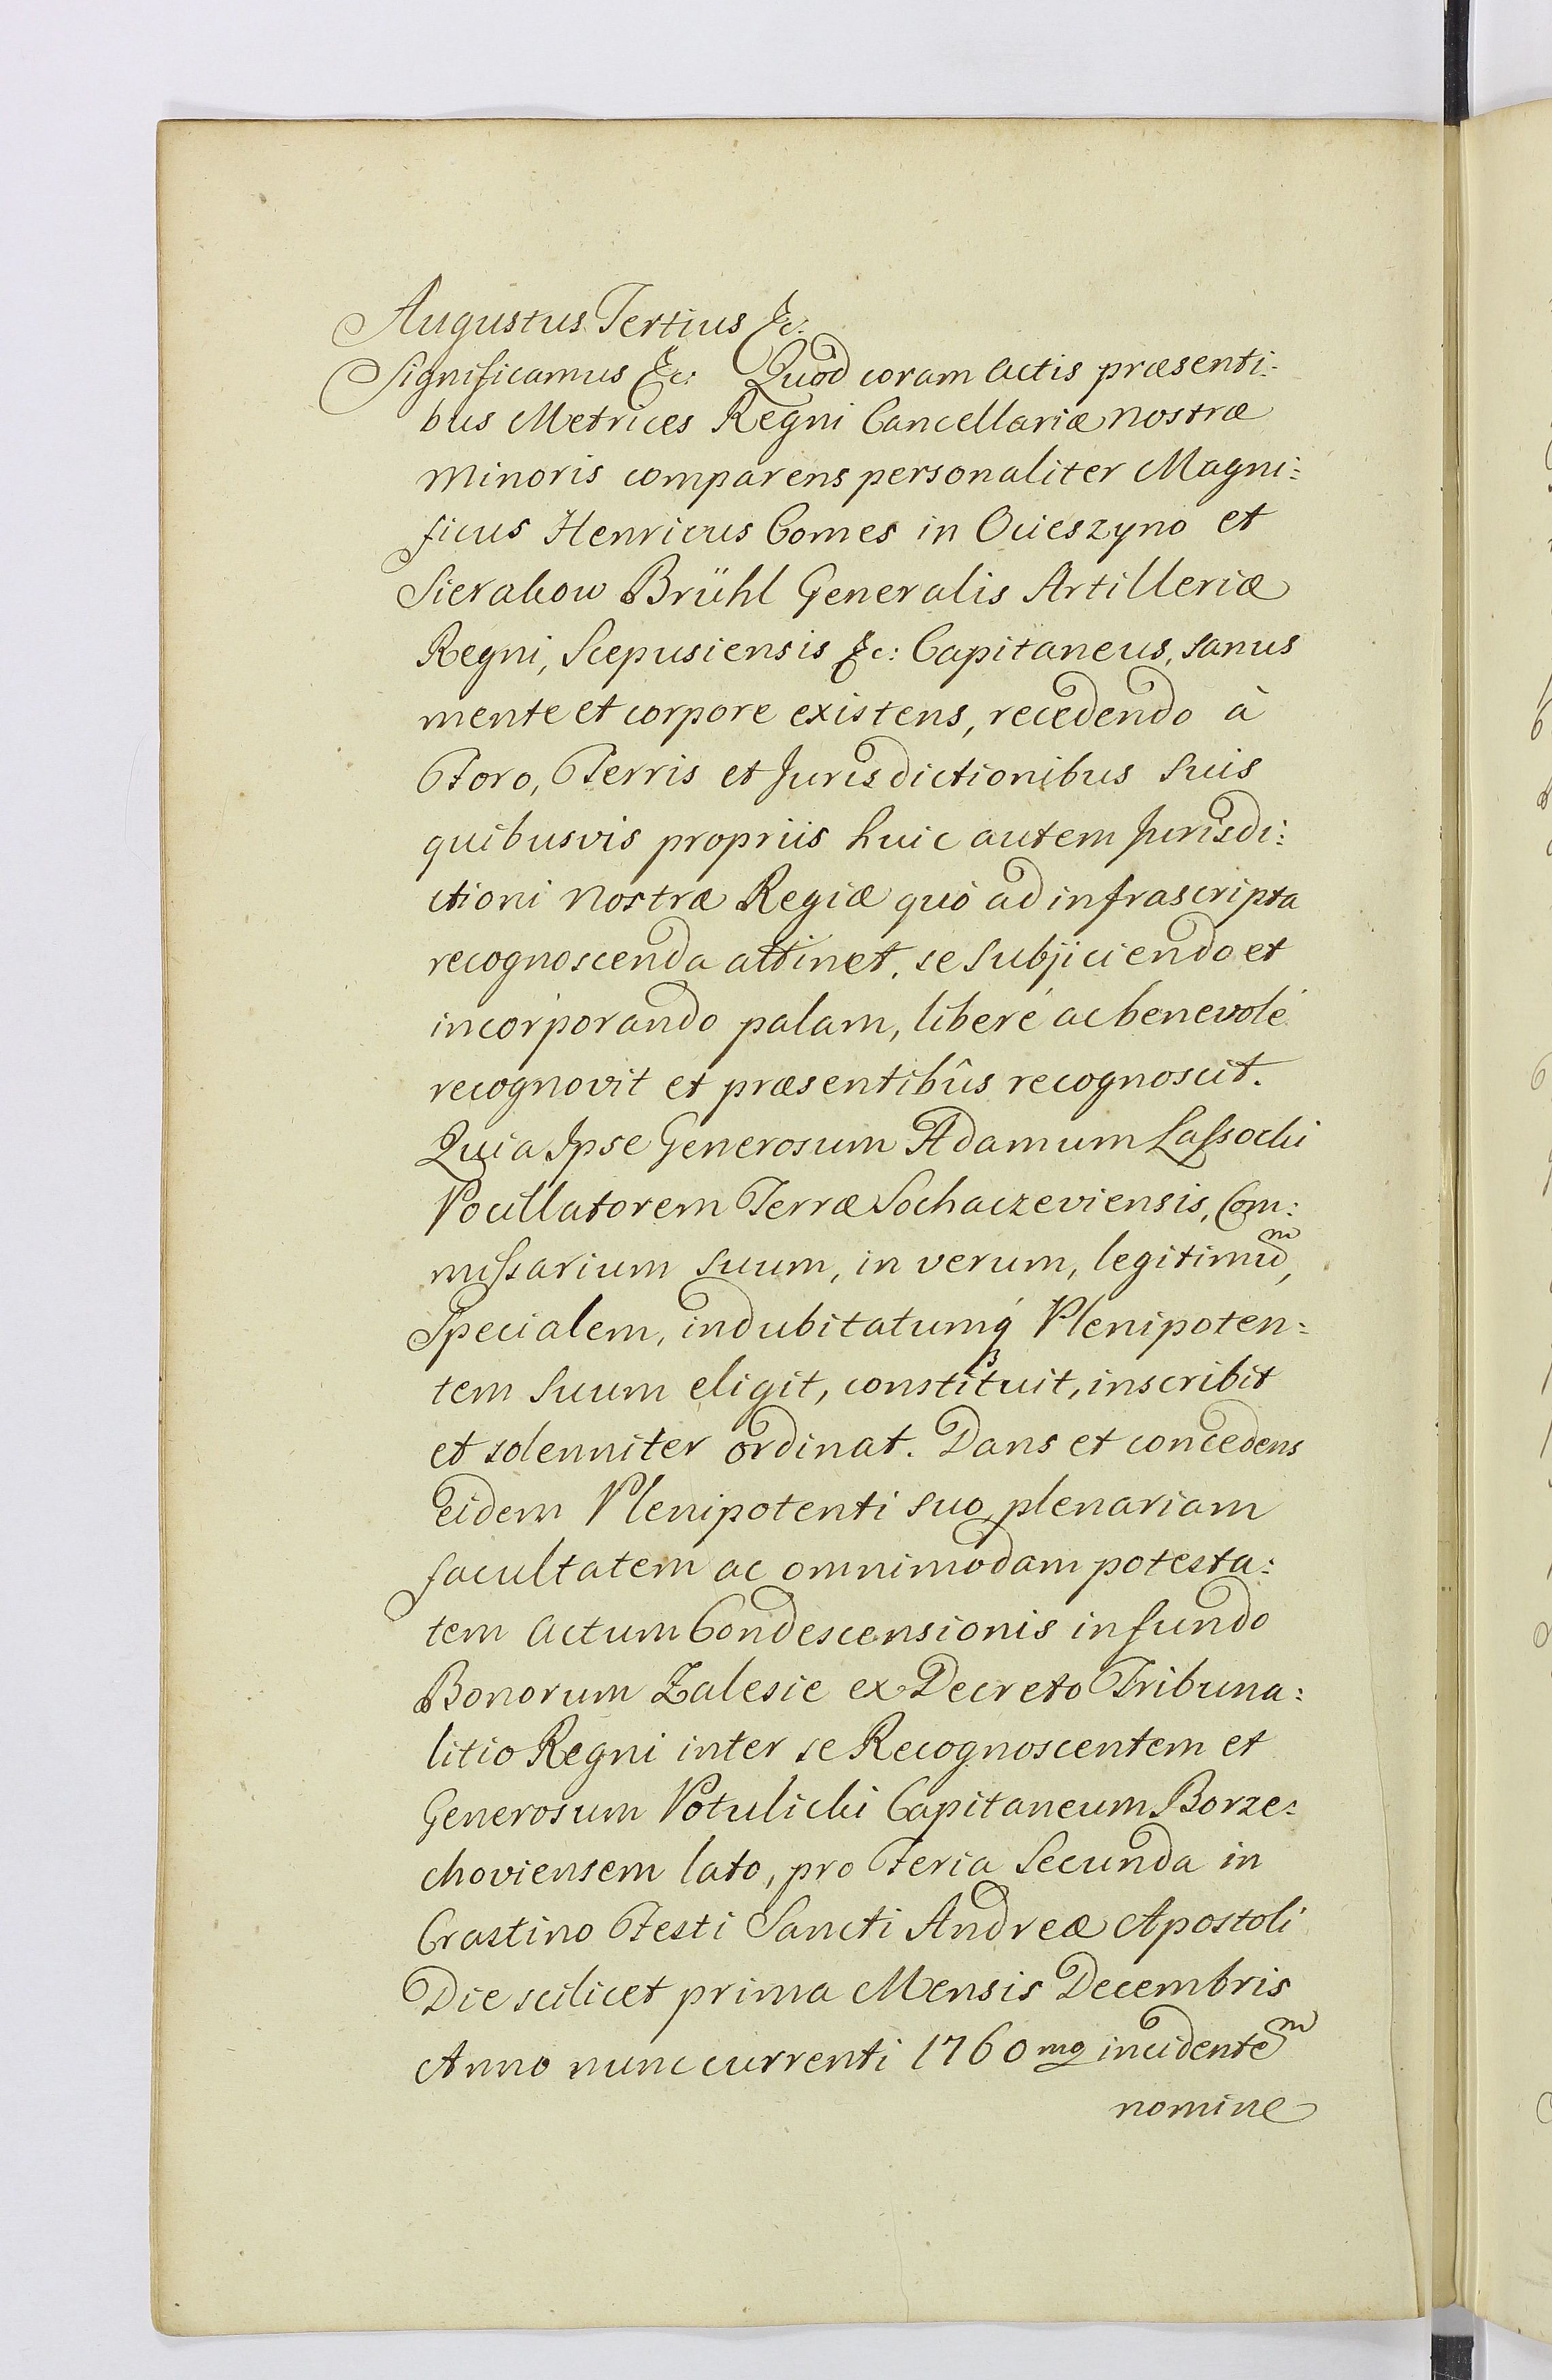 Augustus Tertius &c.
Significamus &c: Quod coram actis præsenti:
bus Metrices Regni Cancellariæ nostræ
minoris comparens personaliter Magni:
ficus Henricus Comes in Ocieszyno et
Sierakow Brühl Generalis Artilleriæ
Regni, Scepusiensis &c: Capitaneus, sanus
mente et corpore existens, recedendo à
Foro, Terris et Jurisdictionibus suis
quibusvis propriis huic autem Jurisdi:
ctioni nostræ Regiæ quò ad infrascripta
recognoscenda attinet, se subjiciendo et
incorporando palam, liberé ac benevolé
recognovit et præsentibûs recognoscit.
Quia Ipse Generosum Adamum Lassocki
Pocillatorem Terræ Sochaczeviensis, Com:
missarium suum, in verum, legitimũ,
Specialem, indubitatumq́ꝫ Plenipoten:
tem suum eligit, constituit, inscribit
et solenniter ordinat. Dans et concedens
eidem Plenipotenti suo plenariam
facultatem ac omnimodam potesta:
tem actum Condescensionis in fundo
Bonorum Zalesie ex Decreto Tribuna:
litio Regni inter se Recognoscentem et
Generosum Potulicki Capitaneum Borze:
choviensem lato, pro Feria Secunda in
Crastino Festi Sancti Andreæ Apostoli
Die scilicet prima Mensis Decembris
Anno nunc currenti 1760 mo incidenteᵐ
nomine